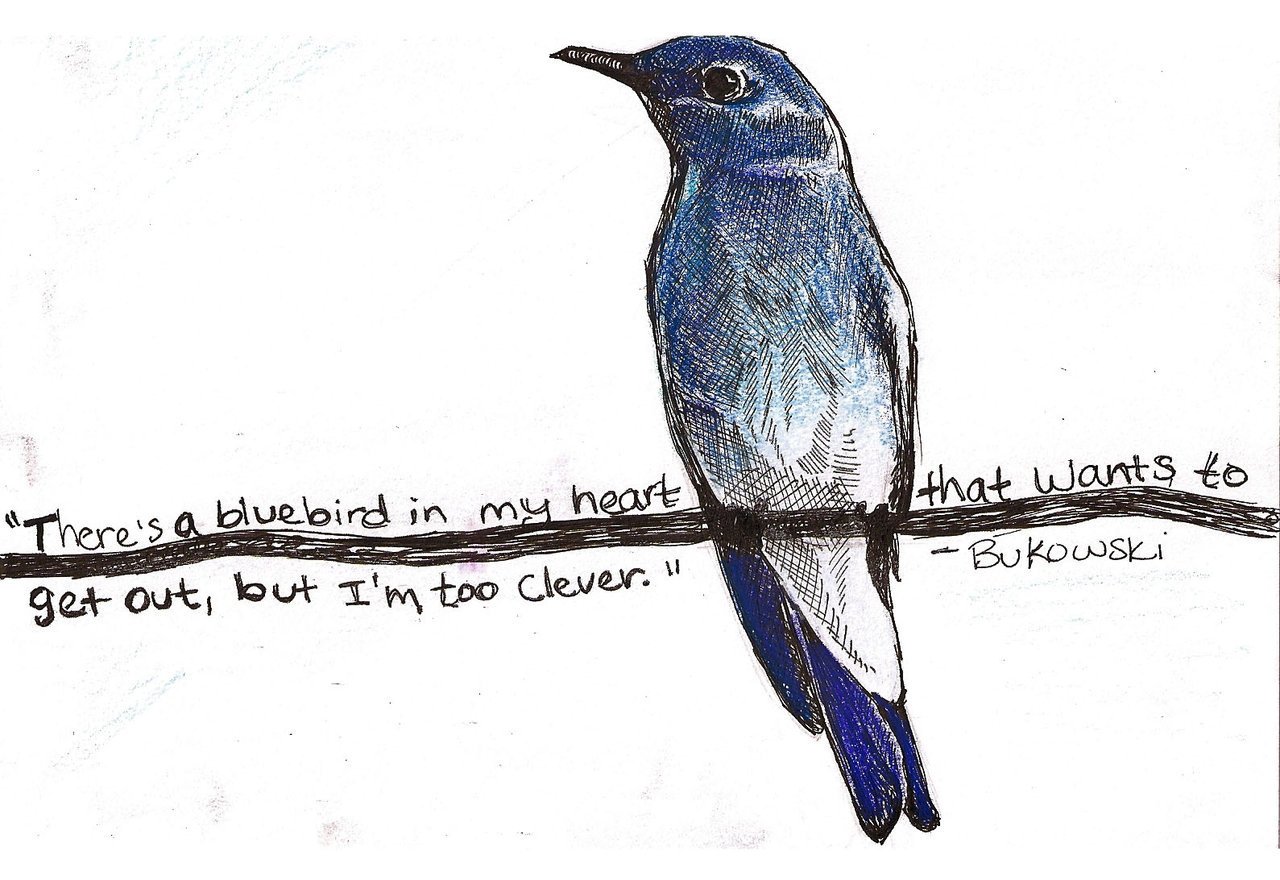 "There's a bluebird in my heart that wants to
get out, but I'm too clever."
- Bukowski